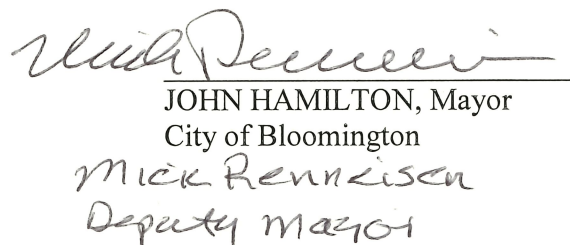 Mick Renneisen
JOHN HAMILTON, Mayor
City of Bloomington
Mick Renneisen
Deputy Mayor